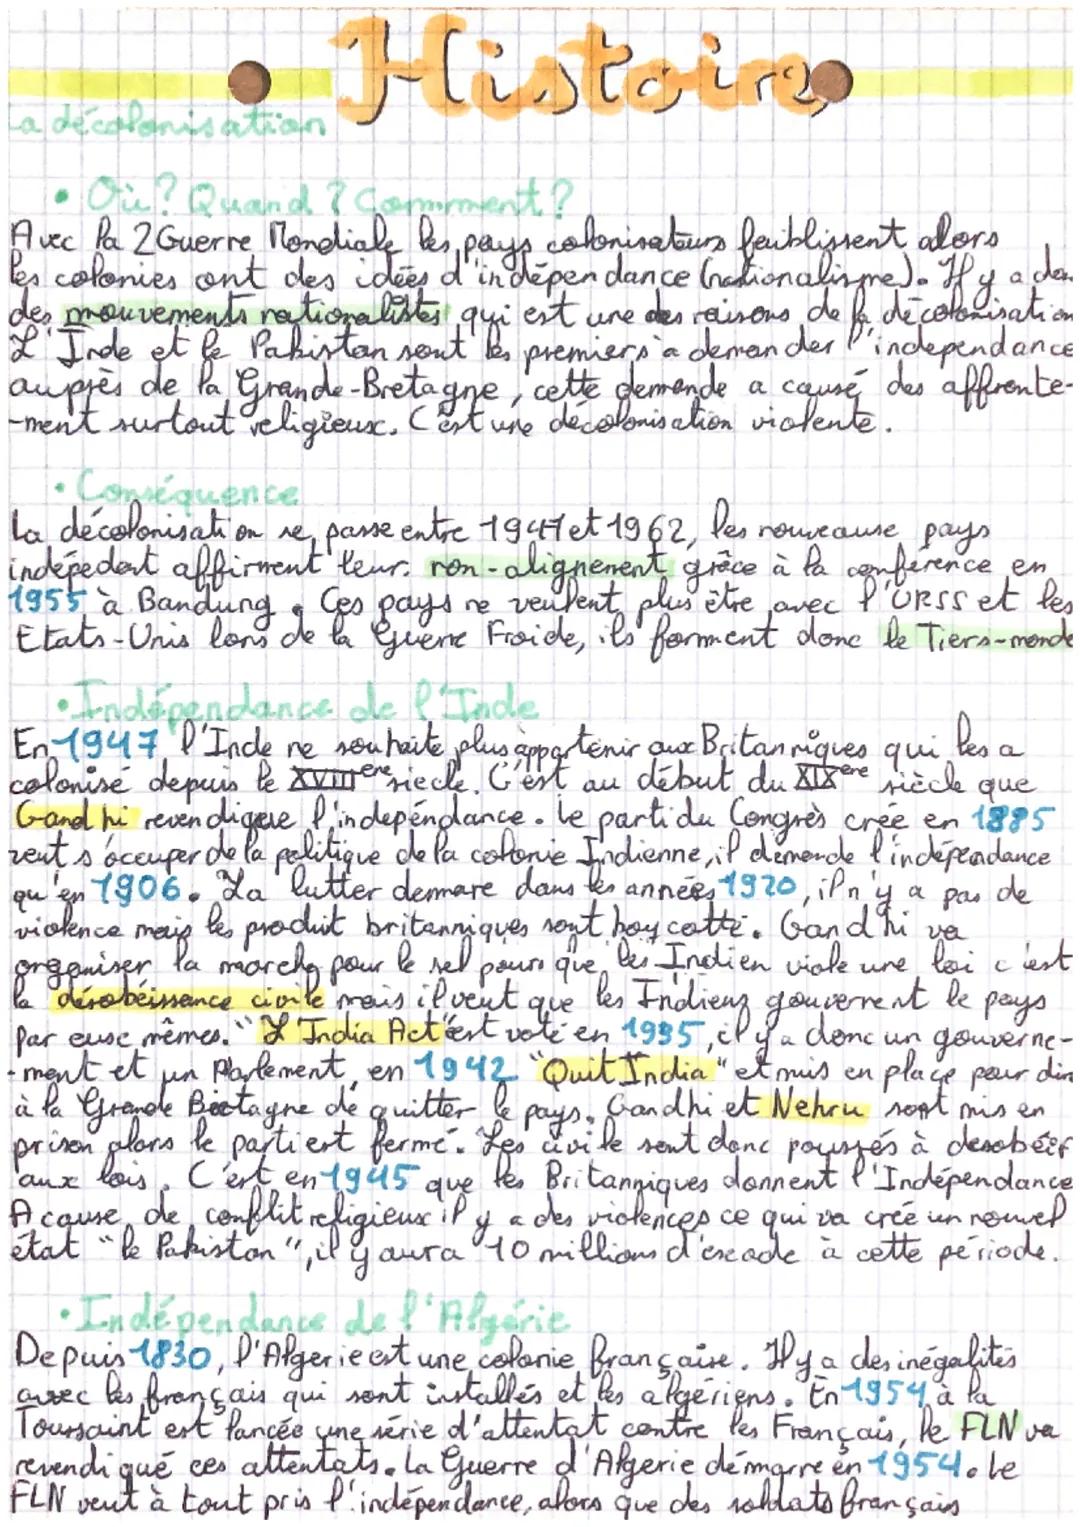 Histoire
La décolonisation
• Où? Quand? Commment?
Avec la 2 Guerre Mondiale les pays colonisateurs faiblissent alors
les colonies ont des idées d'indépendance (nationalisme). Il y a
des mouvements nationalistes qui est une des raisons de la décolonisation
L'Inde et le Pakistan sont les premiers à demander l'independance
auprès de la Grande-Bretagne, cette demande a causé des affronte-
-ment surtout religieux. C'est une décolonisation violente.
• Conséquence
La décolonisation se passe entre 1947 et 1962, les nouveause pays
indépedent affirment leur non-alignement grâce à la conférence en
1955 à Bandung. Ces pays ne veulent plus être avec l'URSS et les
Etats-Unis lors de la Guerre Froide, ils forment donc le Tiers-monde
• Indépendance de l'Inde
En 1947 l'Inde ne souhaite plus appartenir aux Britanniques qui les a
colonisé depuis le XVIIIeme siecle. C'est au début du XIXeme siècle que
Gandhi revendique l'indepéndance. Le parti du Congrès crée en 1885
veut s'occuper de la politique de la colonie Indienne, il demande l'indépendance
qu'en 1906. La lutter demmare dans les années 1920, il n'y a pas de
violence mais les produit britanniques sont boycotté. Gandhi va
organiser la marche pour le sel pours que les Indien viole une loi c'est
la désobéissance civile mais il veut que les Indiens gouvernent le pays
par euse mêmes. "L'India Act" est voté en 1935, il y a donc un gouverne-
-ment et un Parlement, en 1942 "Quit India" et mis en place pour dire
à la Grande Bretagne de quitter le pays. Gandhi et Nehru sont mis en
prison alors le parti est fermé. Les civile sont donc poussés à desobéir
aux lois. C'est en 1945 que les Britanniques donnent l'Indépendance
A cause de conflit religieux il y a des violences ce qui va crée un nouvel
état "le Pakistan", il y aura 10 millions d'exode à cette période.
• Indépendance de l'Algérie
Depuis 1830, l'Algerie est une colonie française. Il y a des inégalités
avec les français qui sont installés et les algériens. En 1954 à la
Toussaint est lancée une série d'attentat contre les Français, le FLN va
revendiqué ces attentats. La Guerre d'Algerie démarre en 1954. Le
FLN veut à tout pris l'indépendance, alors que des soldats français